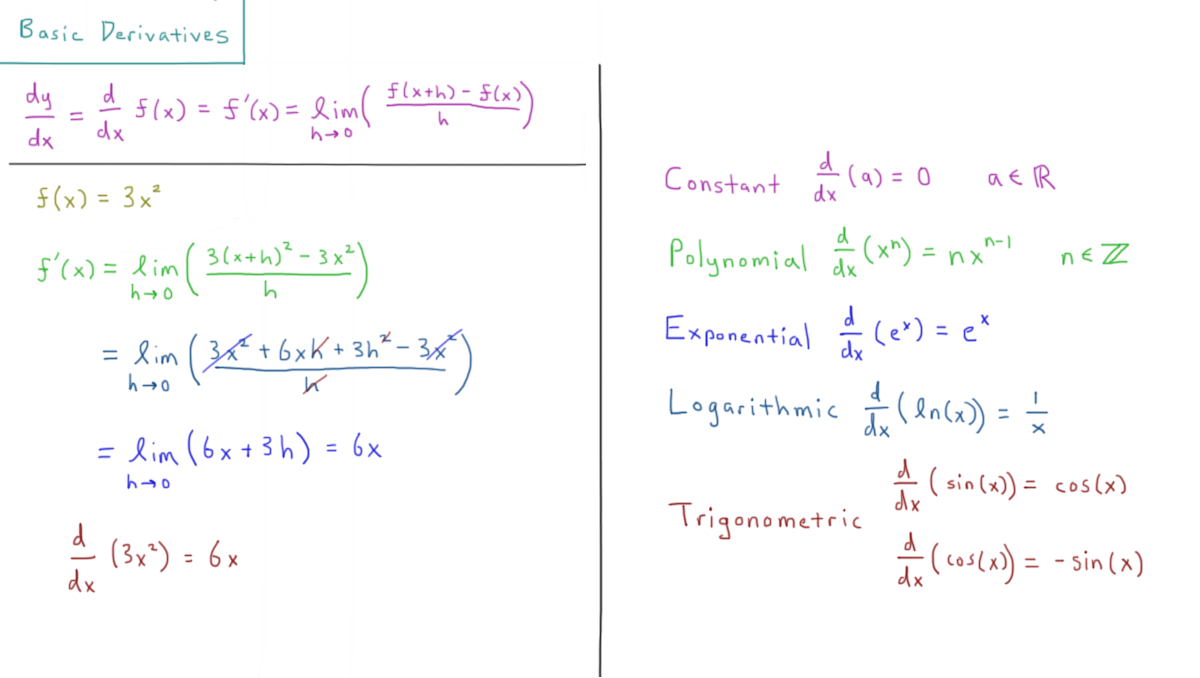 Basic Derivatives
dy/dx = d/dx f(x) = f'(x) = lim h→0 ( (f(x+h) - f(x))/h )
f(x) = 3x²
f'(x) = lim h→0 ( (3(x+h)² - 3x²)/h )
= lim h→0 ( (3x² + 6xh + 3h² - 3x²)/h )
= lim h→0 (6x + 3h) = 6x
d/dx (3x²) = 6x
Constant d/dx (a) = 0 a ∈ ℝ
Polynomial d/dx (xⁿ) = nxⁿ⁻¹ n ∈ ℤ
Exponential d/dx (eˣ) = eˣ
Logarithmic d/dx (ln(x)) = 1/x
Trigonometric d/dx (sin(x)) = cos(x)
d/dx (cos(x)) = -sin(x)